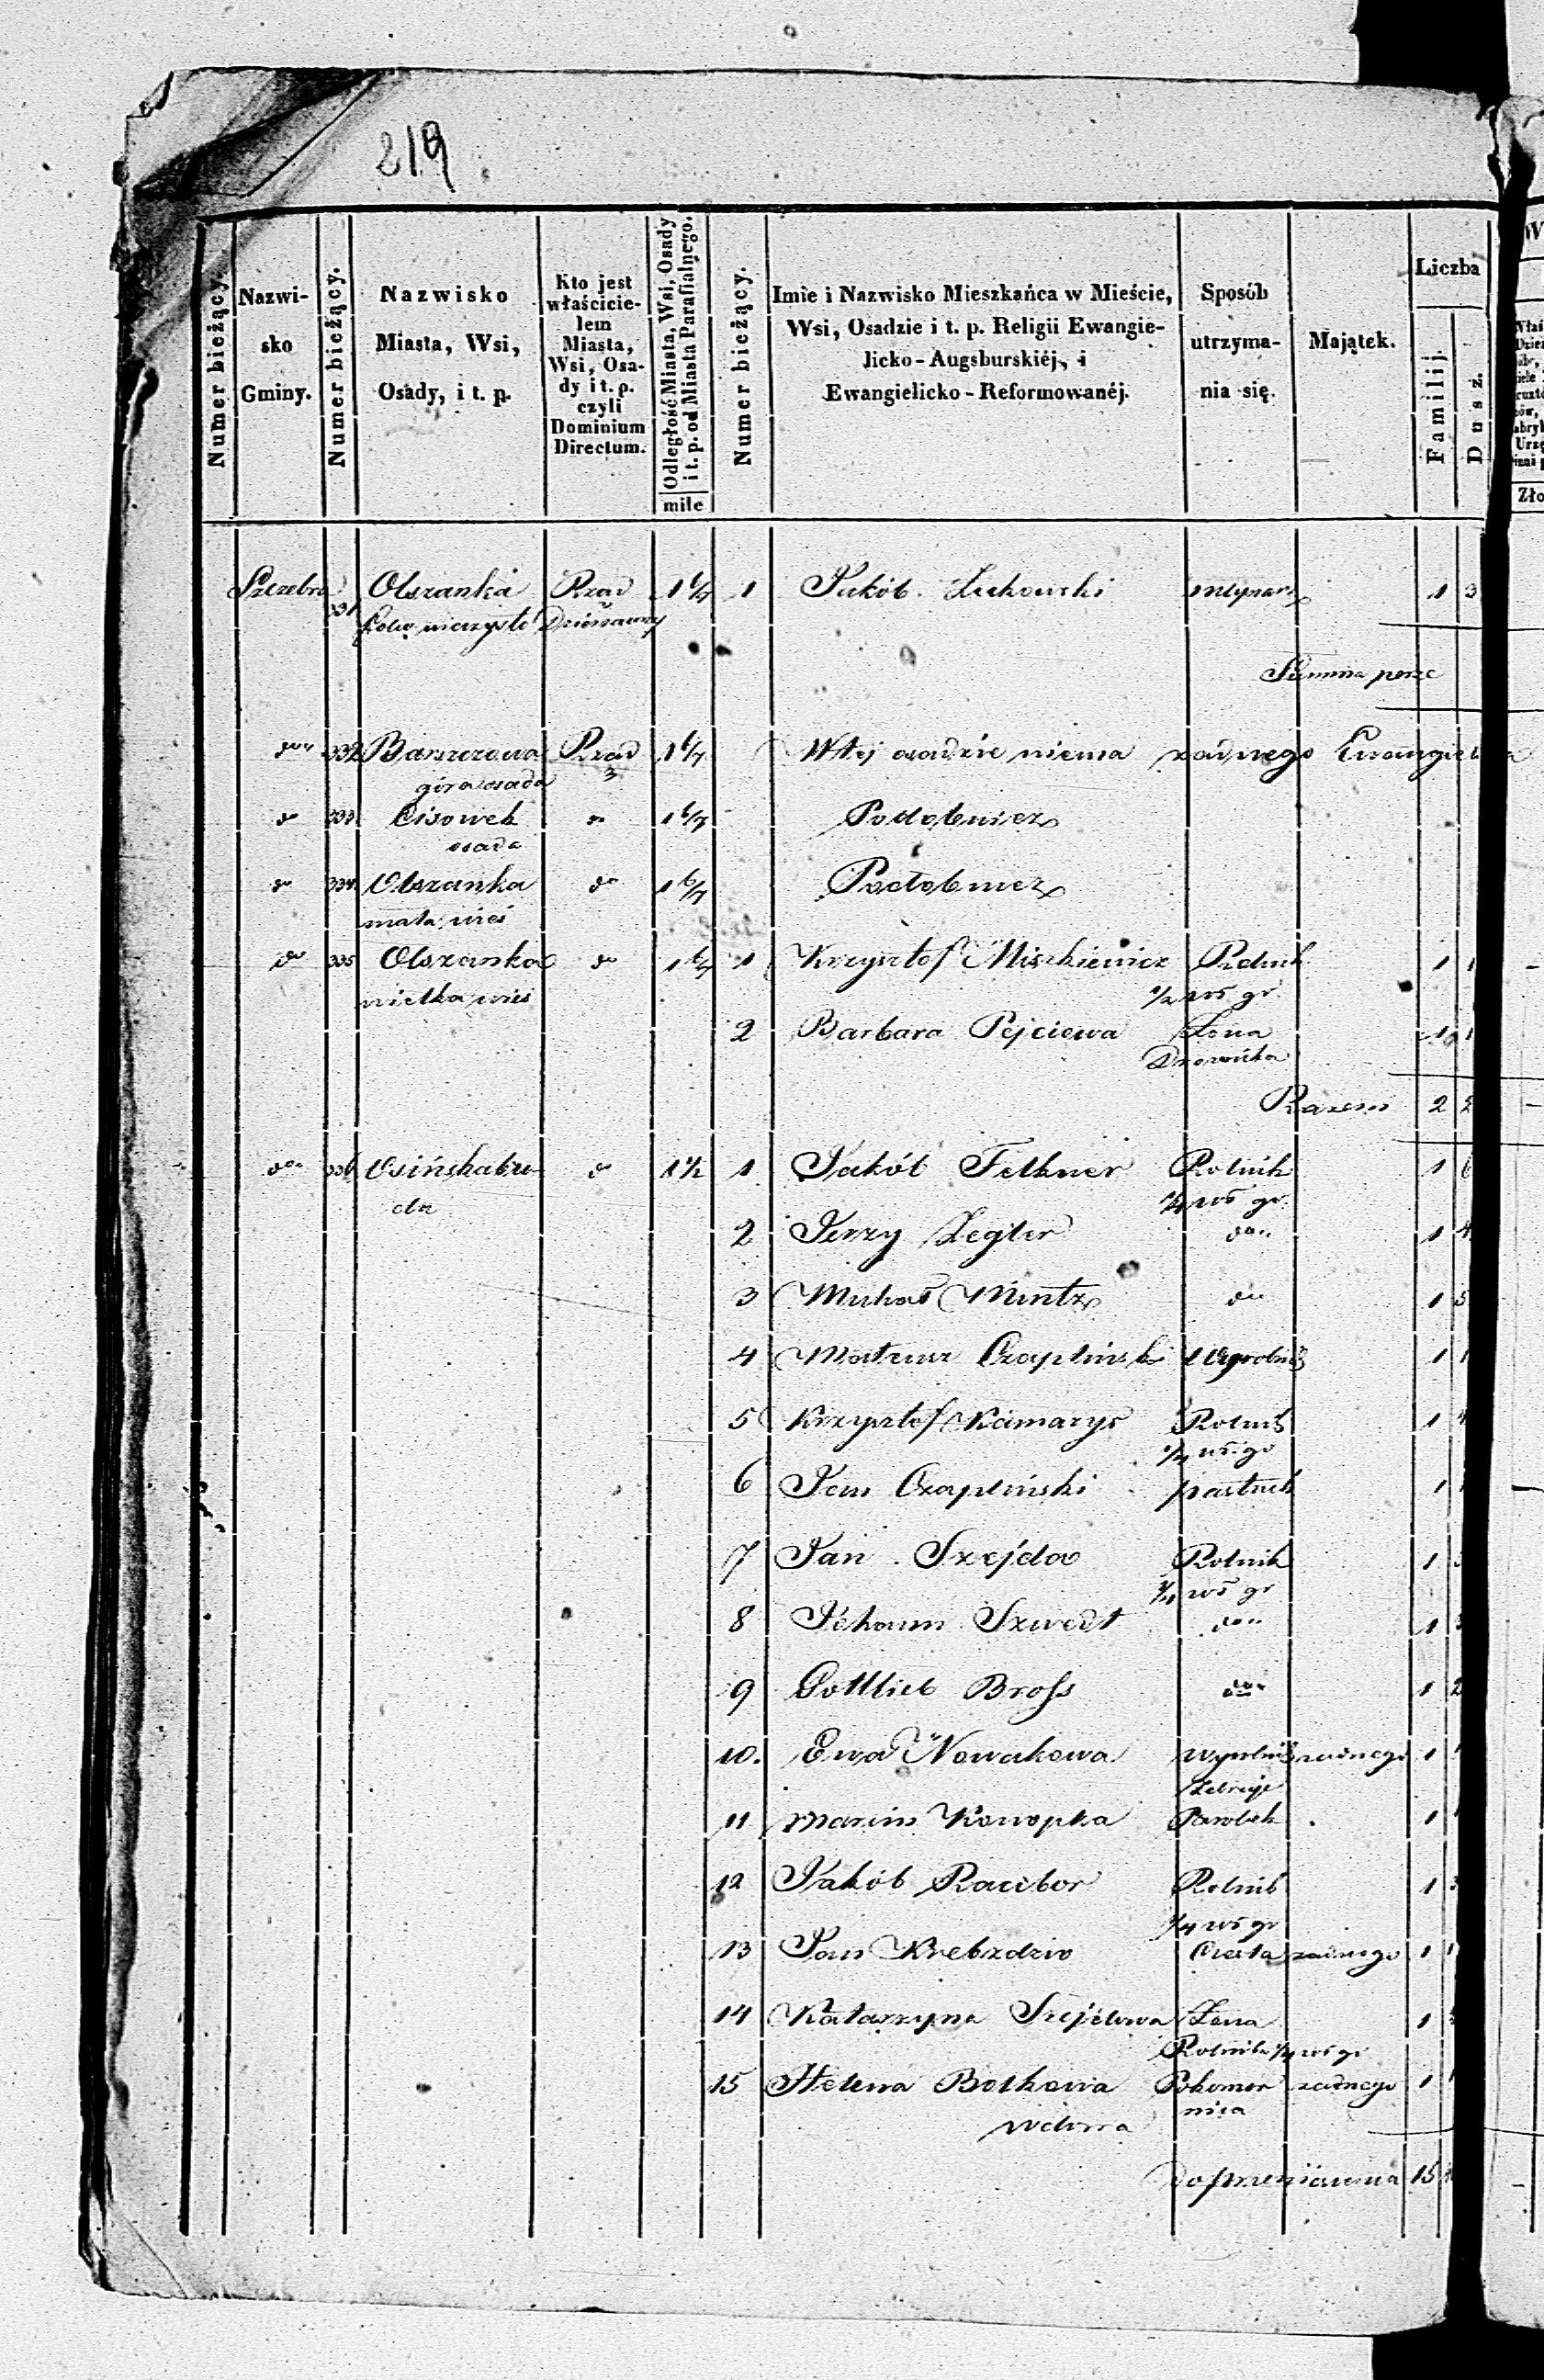 219.
Numer bieżący.
Nazwi-
sko
Gminy.
Numer bieżący.
Nazwisko
Miasta, Wsi,
Osády, i t. p.
Kto jest
właścicie-
lem
Miasta,
Wsi, Osa-
dy i t. p.
czyli
Dominium
Directum.
Odległość Miasta, Wsi, Osady
i t. p. od Miasta Parafialnego.
mile
Numer bieżący.
Imie i Nazwisko Mieszkańca w Mieście,
Wsi, Osadzie i t. p. Religii Ewangie-
licko-Augsburskiéj, i
Ewangielicko-Reformowanéj.
Sposób
utrzyma-
nia się.
Majątek.
Liczba
Familij.
Dusz.
Szczebra 331 Olszanka Rząd 1 6/7 1 Jakób Żukowski młynarz 1 3
folw. wieczysto Dzierżawny
Summa per se
do 332 Barszczowa Rząd 1 6/7 W tej osadzie niema żadnego Ewangielika
góra osada
do 333 Cisowek do 1 6/7 Podobnież
osada
do 334 Olszanka do 1 6/7 Podobnież
mała wieś
do 335 Olszanka do 1 6/7 1 Krzysztof Miszkiewicz Rolnik 1 1
wielka wieś 1/2 wł gr.
2 Barbara Pejciowa Żona 1 1
Razem 2 2
do 336 Osińska bu- do 1 1/2 1 Jakób Felkner Rolnik 1 6
da 1/4 wł gr.
2 Jerzy Zegler do 1 4
3 Michał Mintz do 1 5
4 Mateusz Czapliński Wyrobnik 1 1
5 Krzysztof Kamarys Rolnik 1 4
1/4 wł. gr
6 Jan Czapliński pastuch 1
7 Jan Szejda Rolnik 1 3
1/4 wł gr
8 Johann Szwedt do 1 3
9 Gottlieb Bross do 1 2
10. Ewa Nowakowa żadnego 1 1
Żebrze
11 Marcin Konopka Parobek 1 1
12 Jakób Racibor Rolnik 1 3
1/4 wł gr
13 Jan Krebzdzio żadnego 1 1
14 Katarzyna Szejdowa Żona 1
Rolnika 1/4 wł gr
15 Helena Bolkowa Pokomor żadnego 1 1
nica
wdowa
Do przeniesienia 15